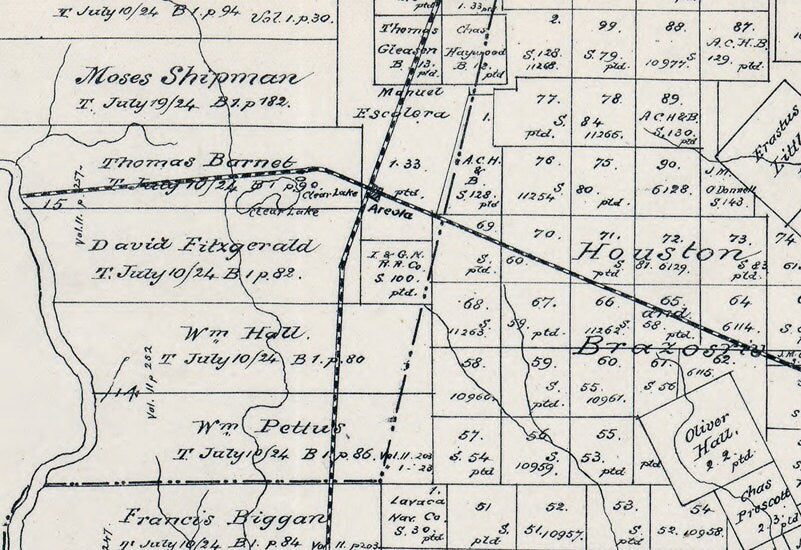 T. July 10/24 B 1. p. 94 Vol. 1. p. 30.
Moses Shipman
T. July 19/24 B 1 p 182.
Thomas Barnet
T. July 10/24 B 1 p 90.
Clear Lake
Clear Lake
15
Vol. 11. p. 257
David Fitzgerald
T. July 10/24 B 1. p. 82.
Wm Hall.
T July 10/24 B 1. p. 80
Vol. 11 p. 252
14
Wm Pettus
T July 10/24 B 1. p. 86.
Vol. 11. 203
1. 23
Francis Biggan
T. July 10/24 B 1. p. 84 Vol. 11. p. 203
247.
ptd
1. 33 ptd
Thomas
Gleason
B 13.
ptd.
Chas
Haywood
B 12.
ptd.
Manuel
Escalera
1. 33
ptd
Areola
1.
A.C.H.
&
B
S. 128.
ptd
I & G.N.
R.R. Co
S. 100.
ptd.
2.
S. 128.
11268.
99.
S. 79.
ptd.
88.
10977.
87.
A.C.H.B.
S. 129. ptd.
77.
S.
ptd.
78.
84
11266.
89.
A.C.H&B.
S. 130.
ptd.
76.
11254
75.
S. 80
ptd.
90.
6128.
J.M.
O'Donnell
S. 143.
Erastus
69.
S.
ptd.
70.
60.
71.
S.
ptd
72.
81. 6129.
73.
S 83
ptd.
74.
Houston
and
Brazoria
68.
11263.
S.
67.
59.
ptd.
66
11262
S.
65.
58.
ptd.
64
6114.
58.
10960.
59.
S.
ptd.
60
55.
10961.
61.
S. 56
62.
6115.
57.
S. 54
ptd
56
10959.
55.
S. 53.
ptd
ptd
Oliver
Hall.
2.2 ptd.
Chas
Prescott
2.3. ptd
1.
Lavaca
Nav. Co.
S. 30.
ptd.
51
S.
ptd.
52.
51. 10957.
53.
S.
ptd
54.
52. 10958.